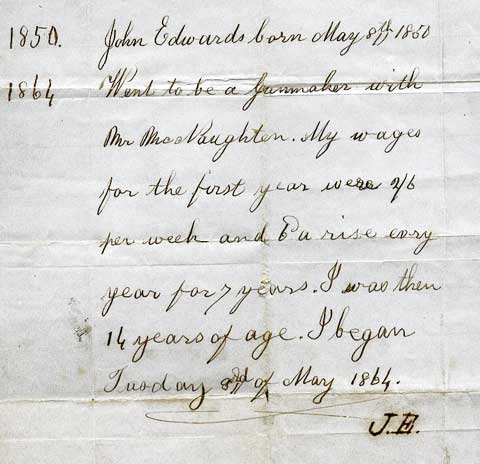 1850. John Edwards born May 8th 1850
1864 Went to be a Gunmaker with
Mr MacNaughten. My wages
for the first year were 2/6
per week and 6 a rise evory
year for 7 years. I was then
14 years of age. I began
Tusday 3rd of May 1864.
J.E.